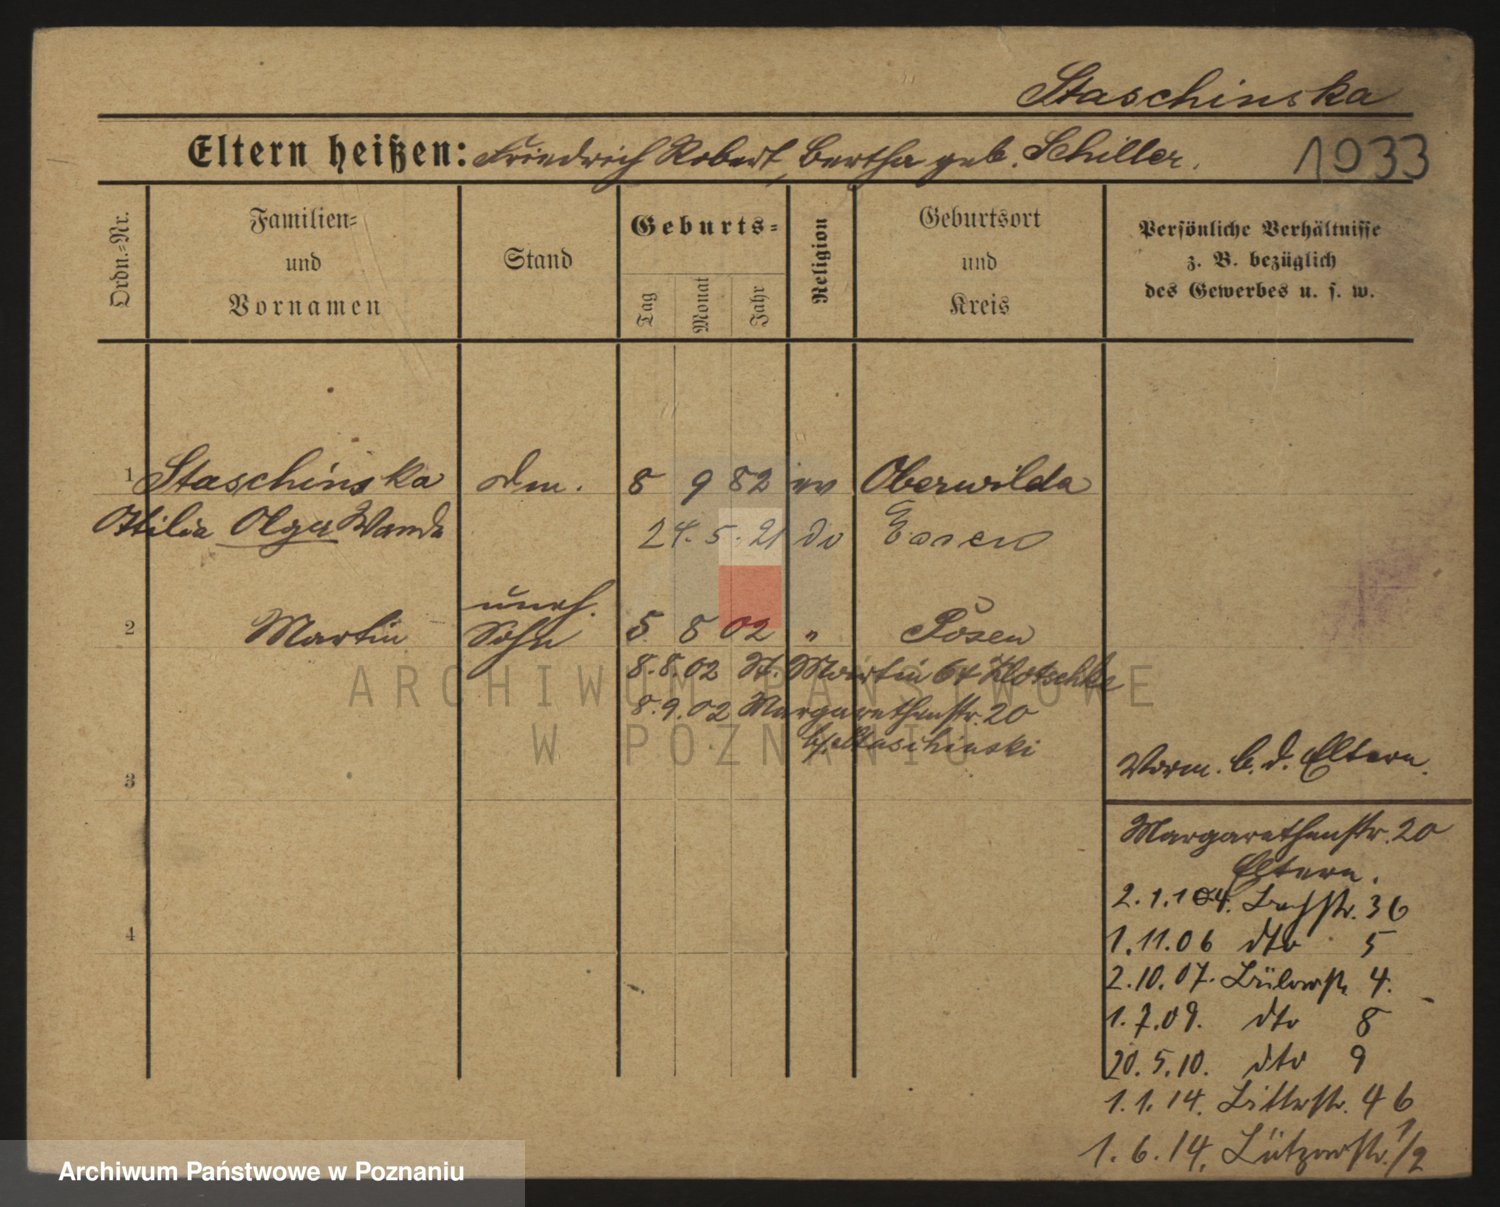 Staschinska
Eltern heißen: Friedrich Robert, Bertha geb. Schiller.
1933
Ordn.=Nr.
Familien=
und
Vornamen
Stand
Geburts=
Tag
Monat
Jahr
Religion
Geburtsort
und
Kreis
Persönliche Verhältnisse
z. B. bezüglich
des Gewerbes u. s. w.
1 Staschinska 8 9 82 ev Oberwilda
Ottilie Olga Wanda 24. 5. 21 do Essen
uneh.
2 Martin Sohn 5 8 02 " Posen
8.8.02 St. Martin 64
8.9.02 Margarethenstr. 20
b/Staschinski
3
Vorm. b. d. Eltern.
Margarethenstr. 20
Eltern.
2.1.104. Bachstr. 36
4
1.11.06 dto 5
2.10.07. Bülowstr 4.
1.7.09. dto 8
20.5.10. dto 9
1.1.14. 46
1.6.14. Lützowstr. 1/2
ARCHIWUM PAŃSTWOWE
W POZNANIU
Archiwum Państwowe w Poznaniu